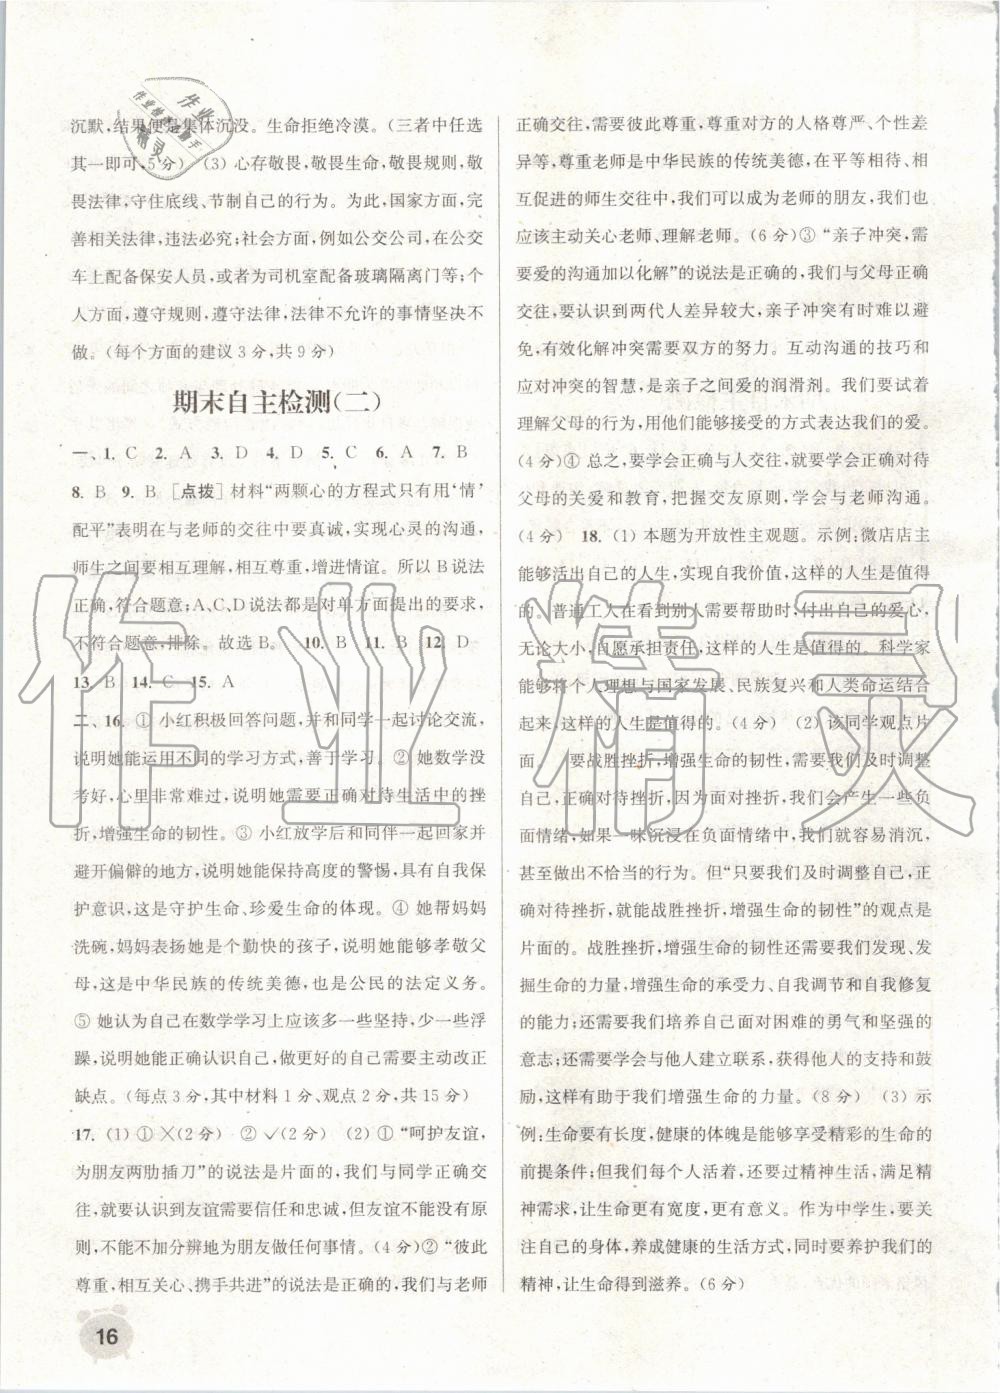 沉默,结果便是集体沉没。生命拒绝冷漠。(三者中任选
其一即可,5分) (3) 心存敬畏,敬畏生命,敬畏规则,敬
畏法律,守住底线、节制自己的行为。为此,国家方面,完
善相关法律,违法必究;社会方面,例如公交公司,在公交
车上配备保安人员,或者为司机室配备玻璃隔离门等;个
人方面,遵守规则,遵守法律,法律不允许的事情坚决不
做。(每个方面的建议3分,共9分)
期末自主检测(二)
一、1. C 2. A 3. D 4. D 5. C 6. A 7. B
8. B 9. B [点拨] 材料“两颗心的方程式只有用‘情’
配平”表明在与老师的交往中要真诚,实现心灵的沟通,
师生之间要相互理解,相互尊重,增进情谊。所以B说法
正确,符合题意;A、C、D说法都是对单方面提出的要求,
不符合题意,排除。故选B。 10. B 11. B 12. D
13. B 14. C 15. A
二、16. ① 小红积极回答问题,并和同学一起讨论交流,
说明她能运用不同的学习方式,善于学习。② 她数学没
考好,心里非常难过,说明她需要正确对待生活中的挫
折,增强生命的韧性。③ 小红放学后和同伴一起回家并
避开偏僻的地方,说明她能保持高度的警惕,具有自我保
护意识,这是守护生命、珍爱生命的体现。④ 她帮妈妈
洗碗,妈妈表扬她是个勤快的孩子,说明她能够孝敬父
母,这是中华民族的传统美德,也是公民的法定义务。
⑤ 她认为自己在数学学习上应该多一些坚持,少一些浮
躁,说明她能正确认识自己,做更好的自己需要主动改正
缺点。(每点3分,其中材料1分、观点2分,共15分)
17. (1) ①✕(2分) ②✓(2分) (2) ① “呵护友谊,
为朋友两肋插刀”的说法是片面的,我们与同学正确交
往,就要认识到友谊需要信任和忠诚,但友谊不能没有原
则,不能不加分辨地为朋友做任何事情。(4分)② “彼此
尊重,相互关心、携手共进”的说法是正确的,我们与老师
正确交往,需要彼此尊重,尊重对方的人格尊严、个性差
异等,尊重老师是中华民族的传统美德,在平等相待、相
互促进的师生交往中,我们可以成为老师的朋友,我们也
应该主动关心老师、理解老师。(6分)③ “亲子冲突,需
要爱的沟通加以化解”的说法是正确的,我们与父母正确
交往,要认识到两代人差异较大,亲子冲突有时难以避
免,有效化解冲突需要双方的努力。互动沟通的技巧和
应对冲突的智慧,是亲子之间爱的润滑剂。我们要试着
理解父母的爱,用他们能够接受的方式表达我们的爱。
(4分)④ 总之,要学会正确与人交往,就要正确对待
父母的关爱和教育,把握交友原则,学会与老师沟通。
(4分) 18. (1) 本题为开放性主观题。示例:微店店主
能够活出自己的人生,实现自我价值,这样的人生是值得
的。普通工人在看到别人需要帮助时,付出自己的爱心,
无论大小,自愿承担责任,这样的人生是值得的。科学家
能够将个人理想与国家发展、民族复兴和人类命运结合
起来,这样的人生是值得的。(4分) (2) 该同学观点片
面。 要战胜挫折,增强生命的韧性,需要我们及时调整
自己,正确对待挫折,因为面对挫折,我们会产生一些负
面情绪,如果一味沉浸在负面情绪中,我们就容易消沉,
甚至做出不恰当的行为。但“只要我们及时调整自己,正
确对待挫折,就能战胜挫折,增强生命的韧性”的观点是
片面的。战胜挫折,增强生命的韧性还需要我们发现、发
掘自己生命的力量,增强生命的承受力、自我调节和自我修复
的能力;还需要我们培养自己面对困难的勇气和坚强的
意志;还需要学会与他人建立联系,获得他人的支持和鼓
励,这样有助于我们增强生命的力量。(8分) (3) 示
例:生命要有长度,健康的体魄是能够享受精彩的生命的
前提条件;但我们每个人活着,还要过精神生活,满足精
神需求,让生命更有宽度,更有意义。作为中学生,要关
注自己的身体,养成健康的生活方式,同时要养护我们的
精神,让生命得到滋养。(6分)
16
作业精灵